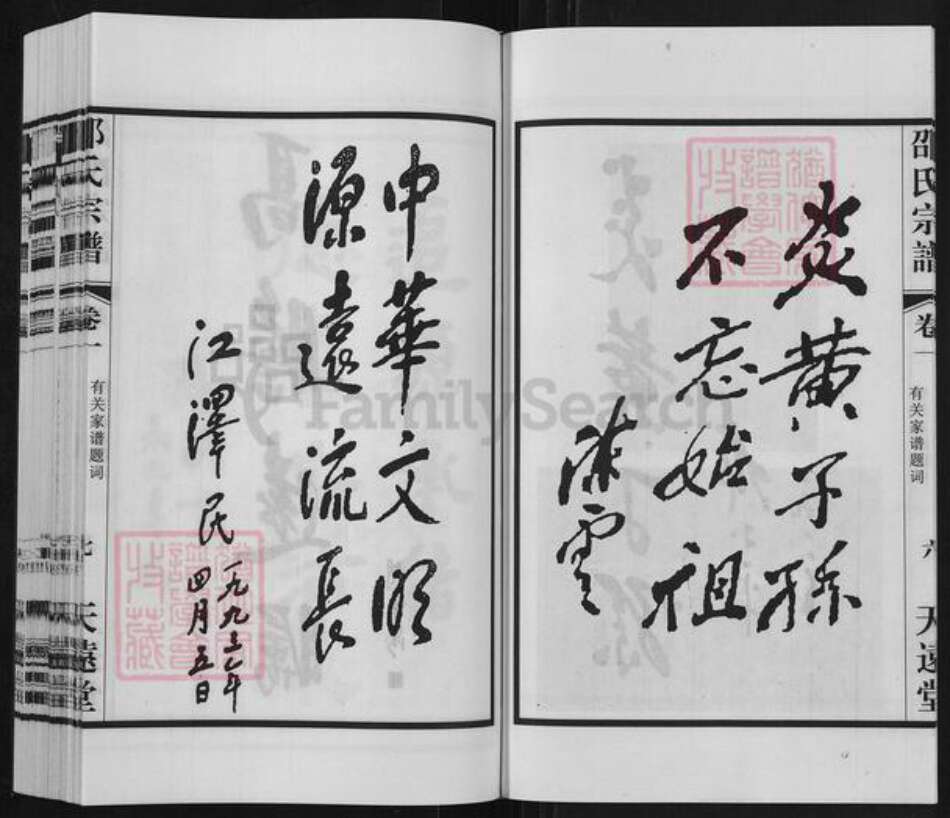 邵氏宗譜
卷一
有关家谱题词
六
天遠堂
炎黄子孫
不忘始祖
陈雲
中華文明
源遠流長
江澤民
一九九三年
四月五日
氏宗譜
卷一
有关家谱题词
七
天遠堂
FamilySearch